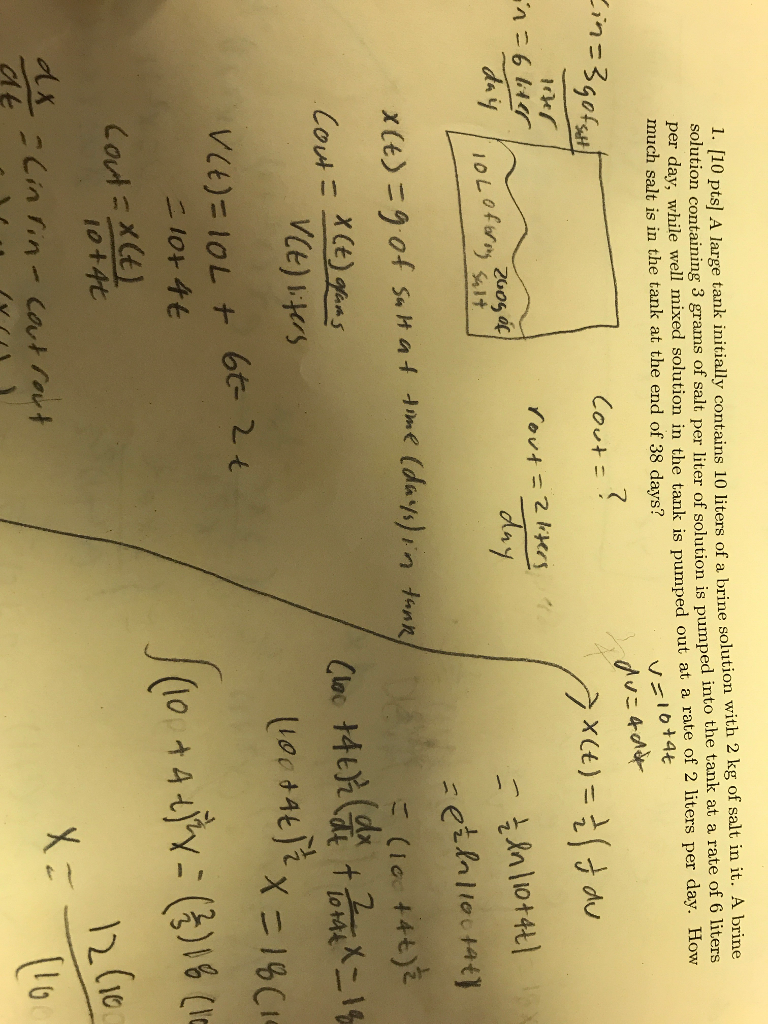 1. [10 pts] A large tank initially contains 10 liters of a brine solution with 2 kg of salt in it. A brine
solution containing 3 grams of salt per liter of solution is pumped into the tank at a rate of 6 liters
per day, while well mixed solution in the tank is pumped out at a rate of 2 liters per day. How
much salt is in the tank at the end of 38 days?
in = 3 g of salt
liter
in = 6 liter
day
10 L of
salt
Cout = ?
rout = 2 liters
day
x(t) = g of salt at time (days) in tank
Cout = x(t) grams
V(t) liters
V(t) = 10L + 6t - 2t
= 10 + 4t
Cout = x(t)
10+4t
dx
dt
= Cin rin - Cout rout
v = 10+4t
dv = 4dt
x(t) = 1/2 ∫ 1/v dv
= 1/2 ln|10+4t|
= e^{1/2 ln|10+4t|}
= (10+4t)^{1/2}
(10+4t)^{1/2} (dx/dt + 2/(10+4t) x = 18
(10+4t)^{1/2} x = 18(1
∫(10+4t)^{1/2} x = (2/3) 18 (1
x = 12(10
(10